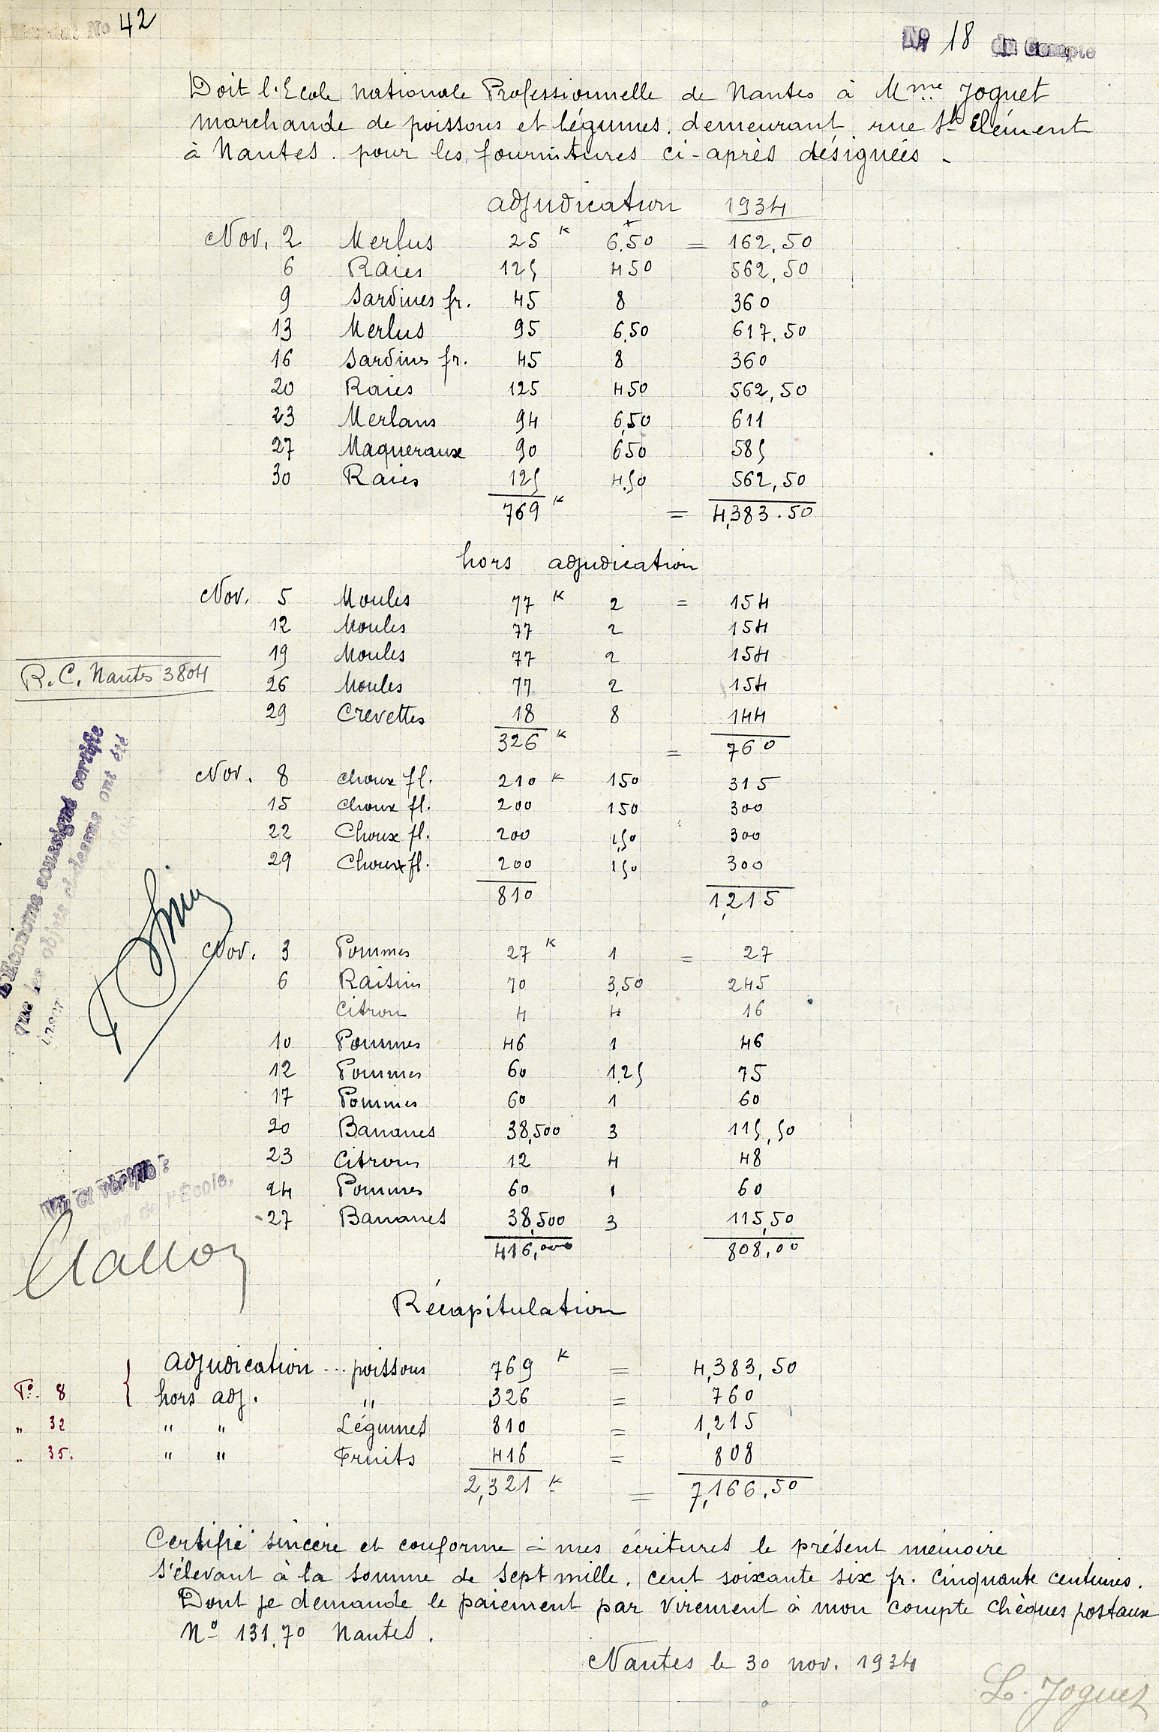 Mandat No 42
No 18 du Compte
Doit l'Ecole Nationale Professionnelle de Nantes à Mme Joguet
marchande de poissons et légumes. demeurant rue St Clément
à Nantes. pour les fournitures ci-après désignées -
adjudication 1934
Nov. 2 Merlus 25 K 6.50 = 162,50
6 Raies 125 450 562,50
9 Sardines fr. 45 8 360
13 Merlus 95 6,50 617,50
16 Sardines fr. 45 8 360
20 Raies 125 450 562,50
23 Merlans 94 6,50 611
27 Maqueraux 90 650 585
30 Raies 125 4.50 562,50
769 K = 4,383.50
hors adjudication
Nov. 5 Moules 77 K 2 = 154
12 Moules 77 2 154
19 Moules 77 2 154
R.C. Nantes 3804
26 Moules 77 2 154
29 Crevettes 18 8 144
326 K = 760
Nov. 8 choux fl. 210 K 150 315
15 choux fl. 200 150 300
22 Choux fl. 200 1,50 300
29 Choux fl. 200 1,50 300
810 1,215
L'Econome soussigné certifie
que les objets ci-dessus ont été
Nov. 3 Pommes 27 K 1 = 27
6 Raisins 70 3,50 245
Citron 4 4 16
10 Pommes 46 1 46
12 Pommes 60 1.25 75
17 Pommes 60 1 60
20 Bananes 38,500 3 115,50
23 Citrons 12 4 48
24 Pommes 60 1 60
27 Bananes 38,500 3 115,50
416,000 808,00
Vu et vérifié :
de l'Ecole,
Récapitulation
adjudication ... poissons 769 K = 4,383,50
Fo. 8 hors adj. " 326 = 760
" 32 " " Légumes 810 = 1,215
" 35. " " Fruits 416 = 808
2,321 K = 7,166,50
Certifié sincère et conforme à mes écritures le présent mémoire
s'élevant à la somme de sept mille, cent soixante six fr. cinquante centimes.
Dont je demande le paiement par virement à mon compte chèques postaux
No 131.70 Nantes.
Nantes le 30 nov. 1934
L. Joguet